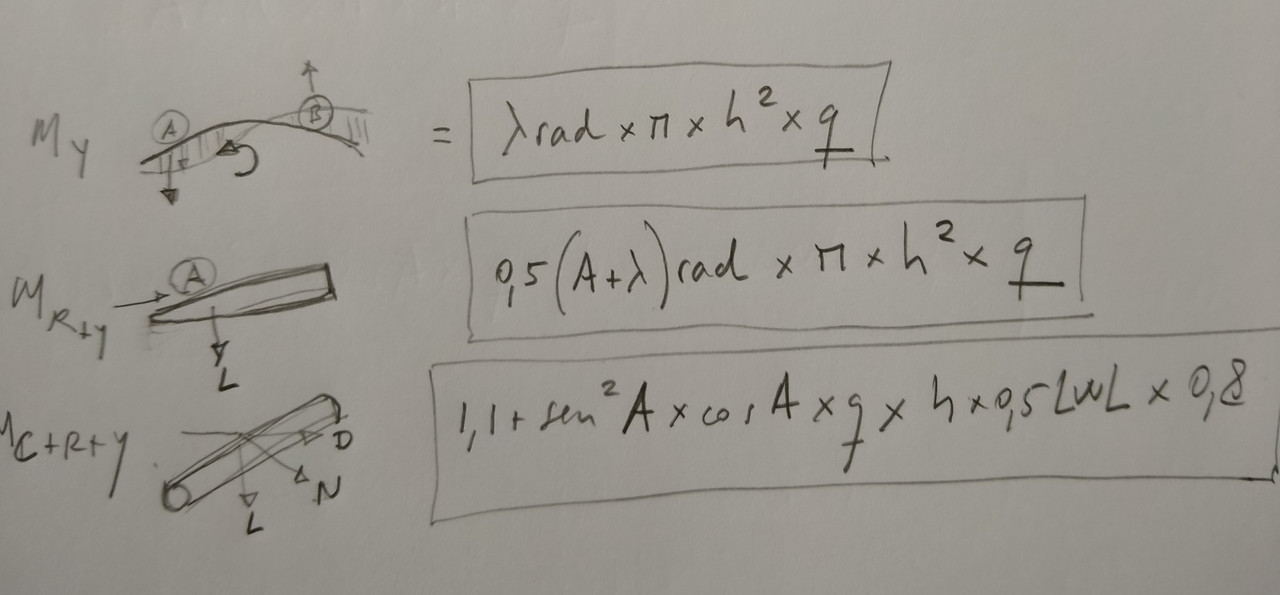 M_Y A B = λ rad × π × h² × q
M_R+Y A L 0,5 (A+λ) rad × π × h² × q
M_C+R+Y D N L 1,1 + sen² A × cos A × q × h × 0,5 LWL × 0,8